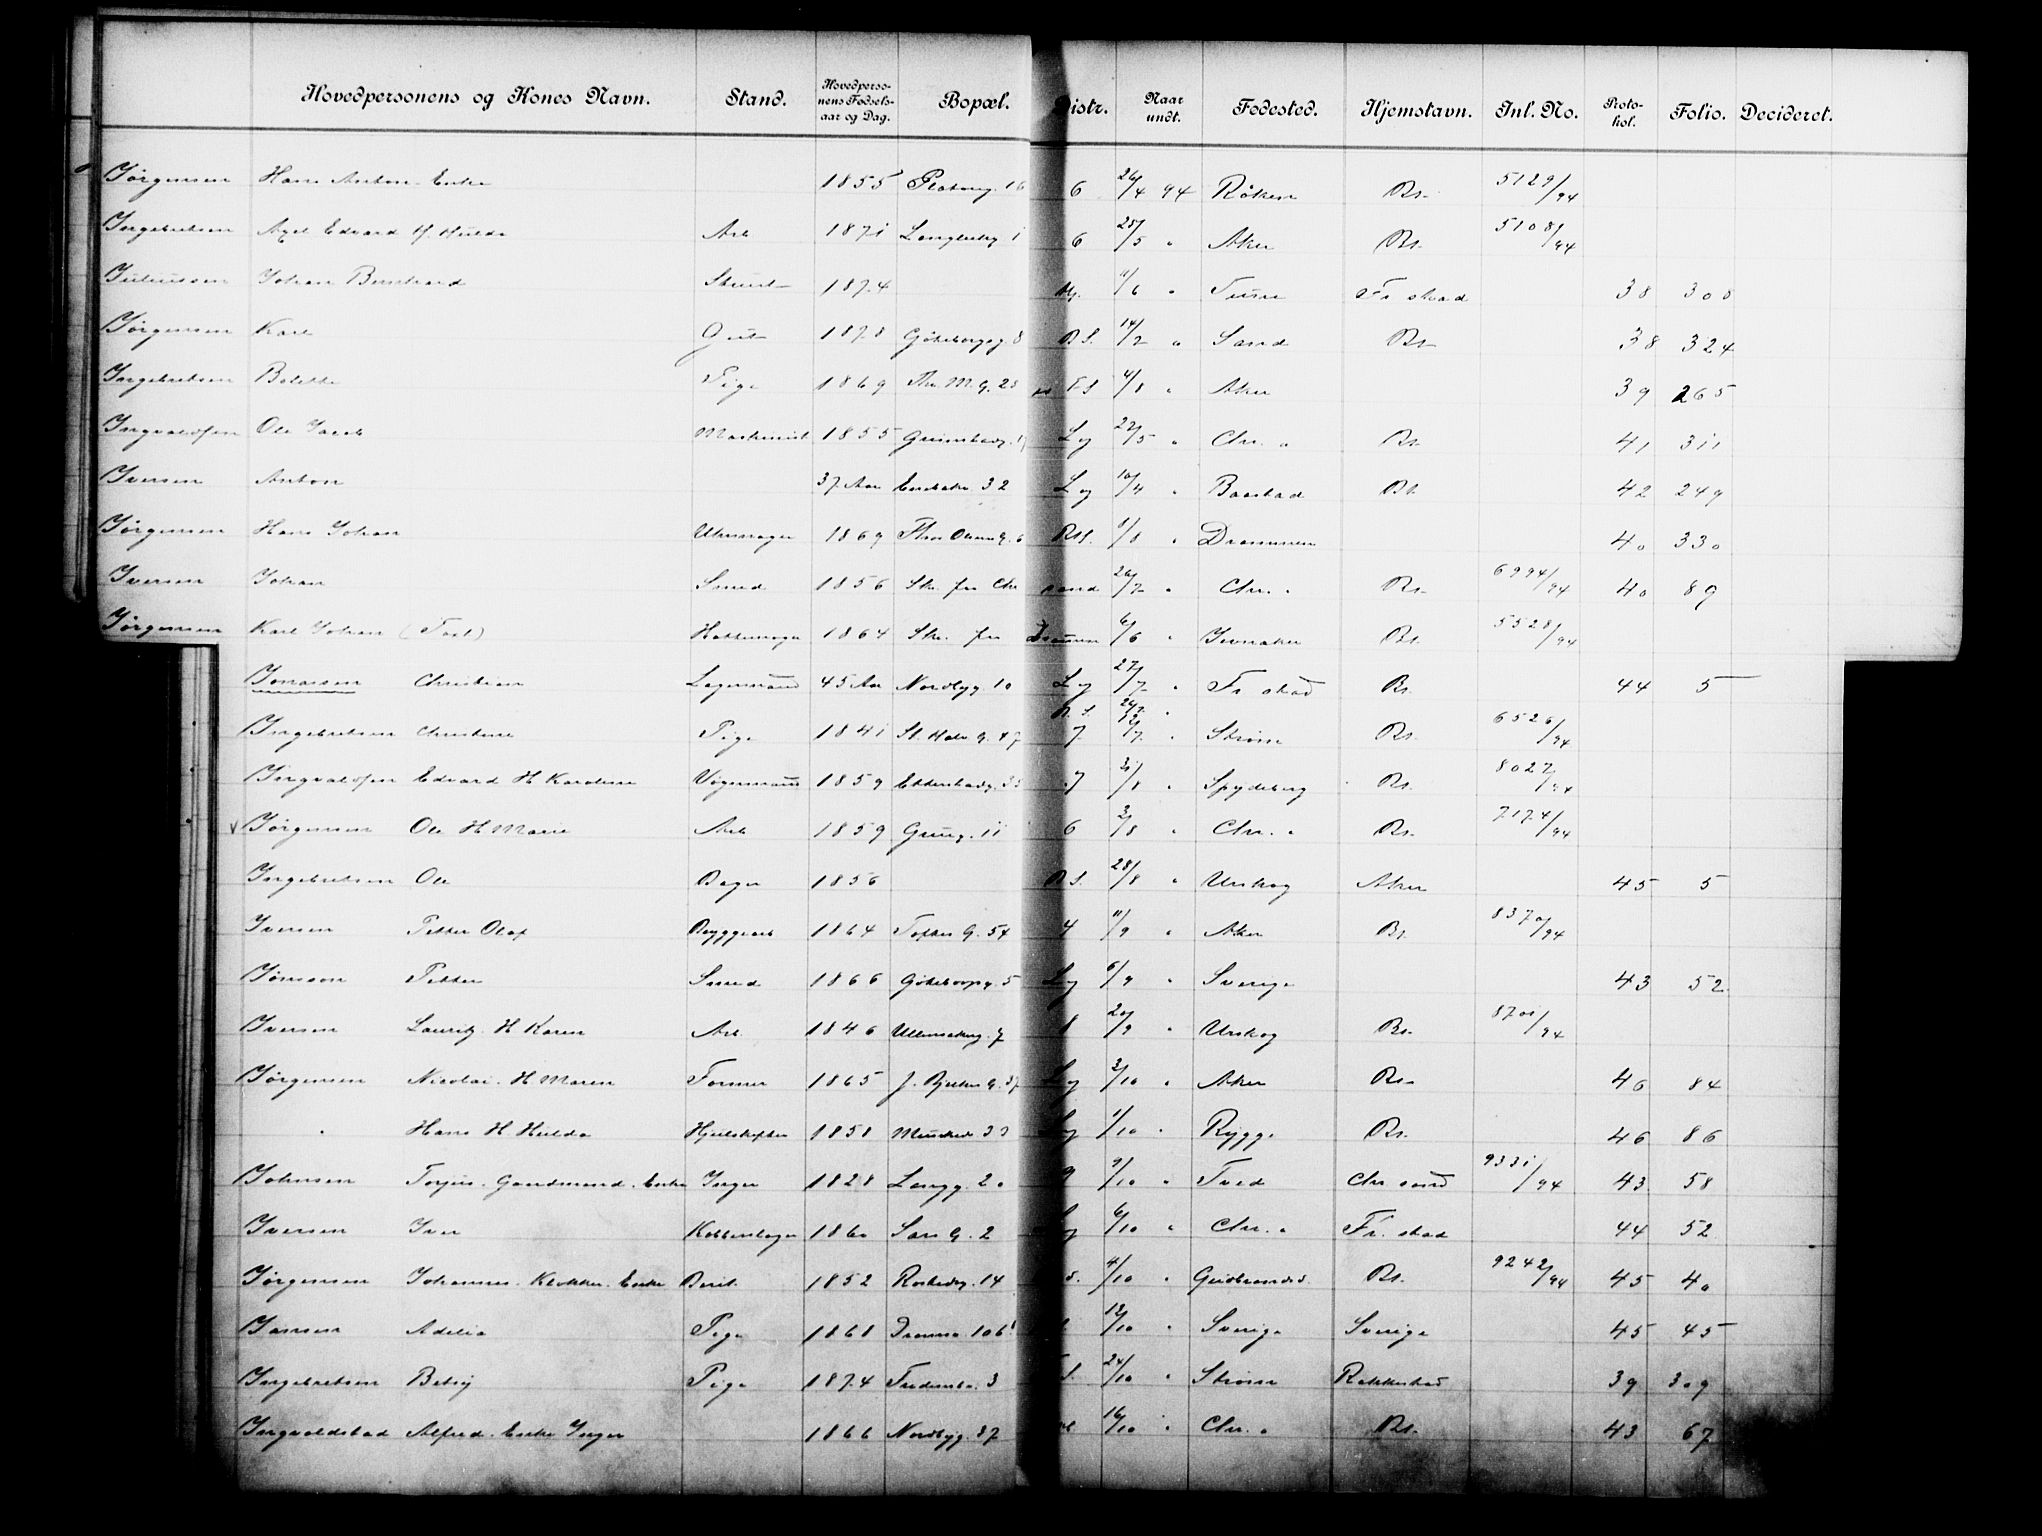 Hovedpersonens og Kones Navn. Stand. Hovedperso-nens Fødsels-aar og Dag. Bopæl. Distr. Naar undt. Fødested. Hjemstavn. Inl. No. Proto-kol. Folio. Decideret.
Jørgensen Hans Anton Enke 1855 16 6 26/4 94 Røken Bs. 5129/94
Ingebretsen Axel Edvard H. Hulda Arb 1871 1 6 25/5 " Aker Bs. 5108/94
Juliussen Johan Bernhard 1874 11/6 " Tune Fr stad 38 308
Jørgensen Karl Gut 1878 Göteborgg 8 B S. 14/2 " Sand Bs 38 324
Ingebretsen Bolette Pige 1869 Thv. M. G. 28 F S 4/8 " Aker 39 265
Ingvaldsen Ole Jacob Maskinist 1855 Lg 22/5 " Chr. " Bs. 41 311
Iversen Anton 37 Aar 32 Lg 10/4 " Baastad Bs. 42 249
Jørgensen Hans Johan Uhrmager 1869 Thv Olsens G. 6 1/8 " Drammen 40 330
Iversen Johan Smed 1856 Skr. fra Chr sand 26/7 " Chr. " Bs. 6994/94 40 89
Jørgensen Karl Johan Hattemager 1864 Skr. fra Drammen 6/6 " Jevnaker Bs. 5528/94
Jonassen Christian Lagermand 45 Aar Nordbyg. 10 Lg 27/7 " Fr stad Bs. 44 5
B. S. 26/7 "
Ingebretsen Christine Pige 1841 St. Halv. G. 47 7 " Strøm Bs. 6526/94
Ingvaldsen Edvard H Karoline Vognmand 1859 Ekkersbergg. 35 7 31/8 " Spydeberg Bs. 8027/94
Jørgensen Ole H Marie Arb 1859 Grüng. 11 6 2/8 " Chr. " Bs. 7174/94
Ingebretsen Ole Bager 1856 B S. 28/8 " Urskog Aker 45 5
Iversen Petter Olaf Bryggearb 1864 Toftes G. 54 4 11/9 " Aker Bs. 8370/94
Jonsson Petter Smed 1866 Göteborgg. 5 Lg 6/9 " Sverige 43 52
Iversen Lauritz. H Karen Arb. 1846 Ullensakerg. 7 8 20/9 " Urskog Bs. 8701/94
Jørgensen Nicolai. H Maren Former 1865 J. Bjelkes G. 37 Lg 2/10 " Aker Bs. 46 84
" Hans H. Hulda 1858 Lg 1/10 " Rygge Bs. 46 86
Johnsen Torjus. Gundmund. Enke Inger 1828 Langg. 20 9 9/10 " Tved Chr sand 9331/94 43 58
Iversen Iver 1860 Sars G. 2 Lg 6/10 " Chr. " Fr. stad 44 52
Jørgensen Johannes. Klokker. Enke Berit 1852 14 S. 4/10 " Gudbrandsd. Bs. 9242/94 45 40
Jansen Adelia Pige 1868 Dramsv. 106 12/10 " Sverige Sverige 45 45
Ingebretsen Betsy Pige 1874 3 S. 24/10 " Strøm Rakkestad 39 309
Ingvoldstad Alfred. Enke Inger 1866 Nordbyg. 37 16/10 " Chr. " Bs. 43 67